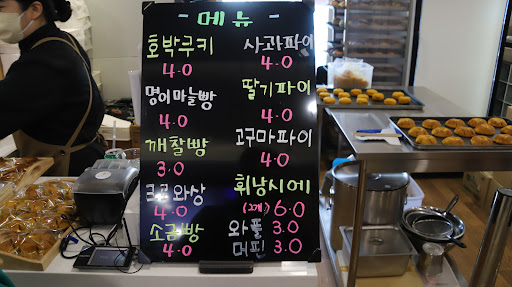 - 메뉴 -
호박쿠키
4.0
명이마늘빵
4.0
깨찰빵
3.0
크로와상
4.0
소금빵
4.0
사과파이
4.0
딸기파이
4.0
고구마파이
4.0
휘낭시에
(2개) 6.0
와플 3.0
머핀 3.0